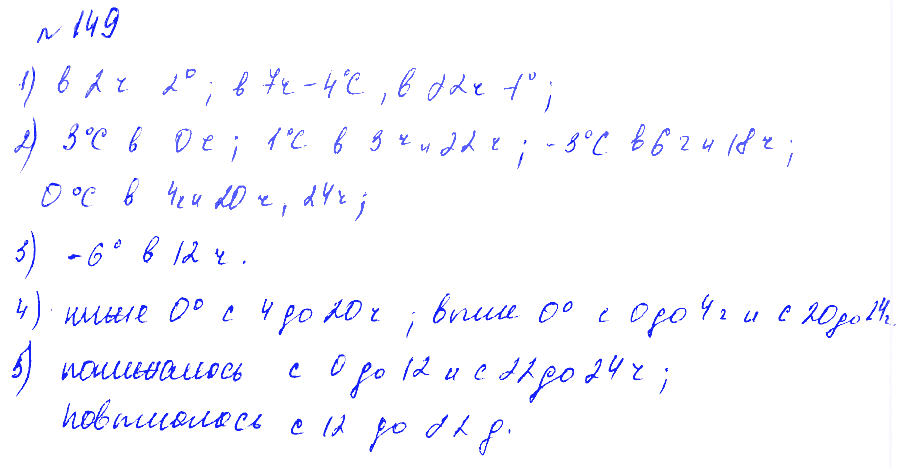 № 149
1) в 2 ч 2°; в 7ч -4°С, в 22ч 1°;
2) 3°С в 0 ч; 1°С в 3 ч и 22 ч; -3°С в 6 ч и 18 ч;
0°С в 4ч и 20 ч, 24ч;
3) -6° в 12 ч.
4) ниже 0° с 4 до 20 ч; выше 0° с 0 до 4 ч и с 20 до 24ч.
5) понижалось с 0 до 12 и с 22 до 24 ч;
повышалось с 12 до 22 д.